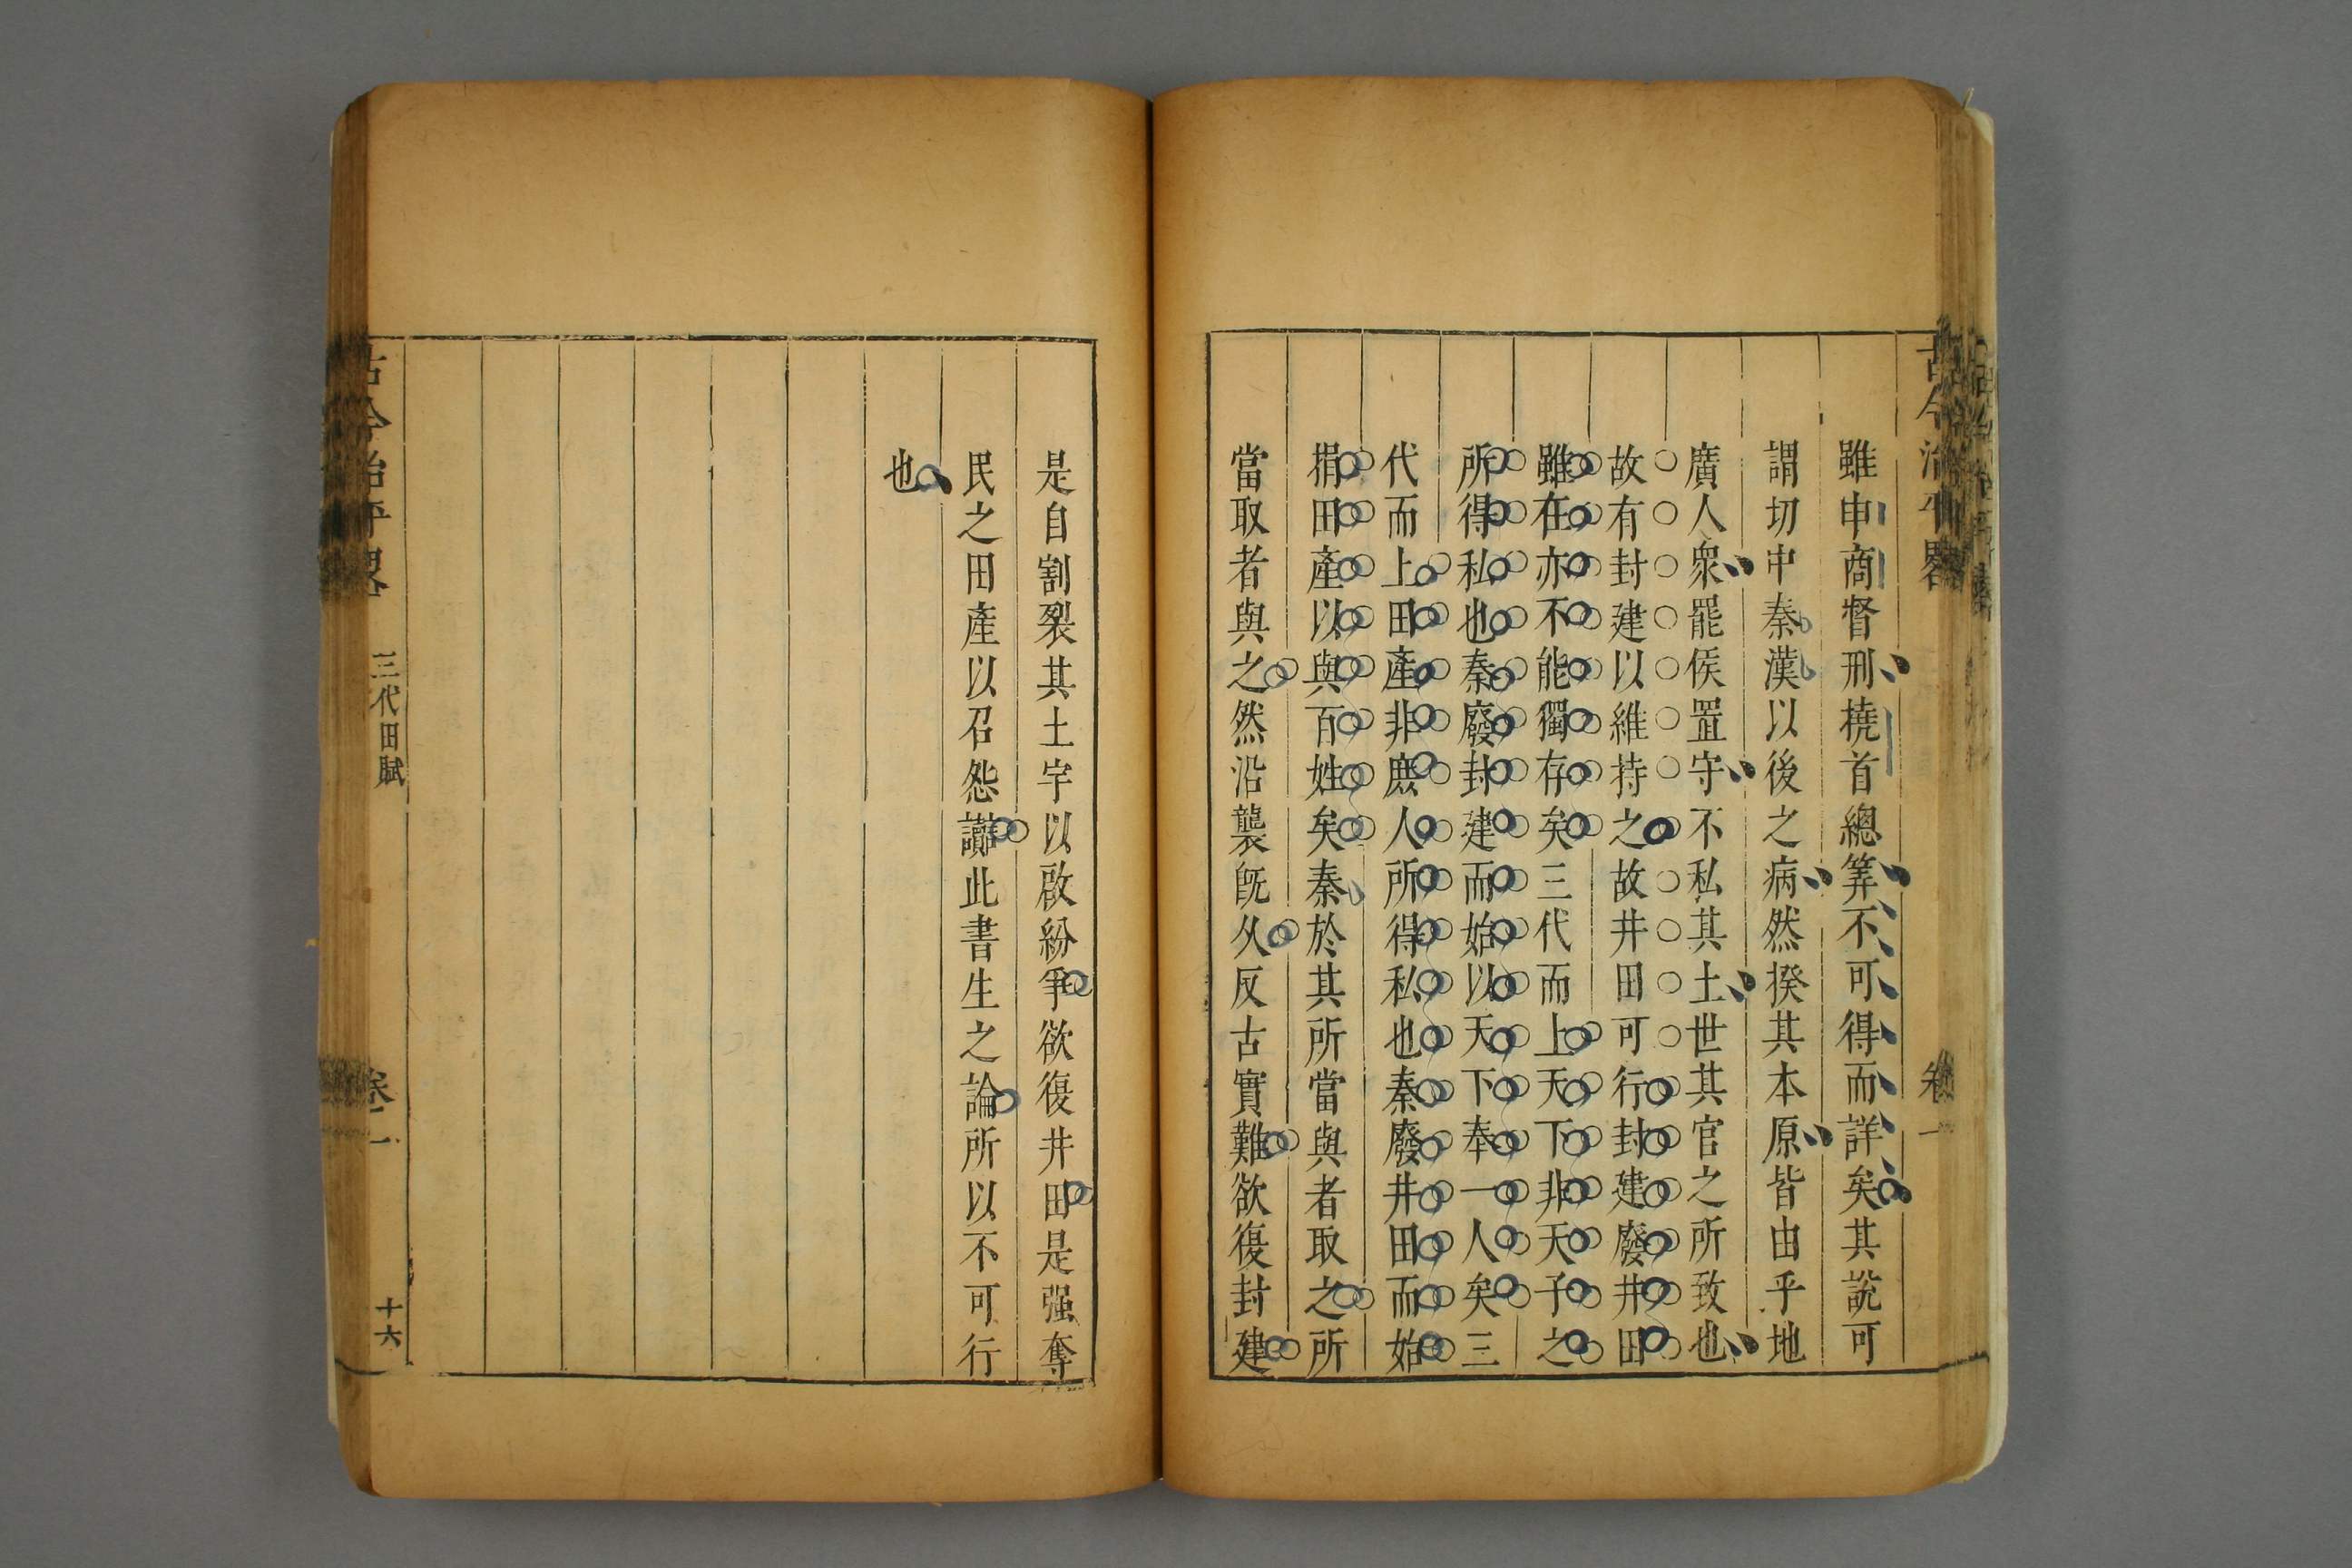 古今治平畧
卷一
雖申商督刑撓首總筭不可得而詳矣其說可
謂切中秦漢以後之病然揆其本原皆由乎地
廣人衆罷侯置守不私其土世其官之所致也
故有封建以維持之故井田可行封建廢井田
雖在亦不能獨存矣三代而上天下非天子之
所得私也秦廢封建而始以天下奉一人矣三
代而上田產非庶人所得私也秦廢井田而始
捐田產以與百姓矣秦於其所當與者取之所
當取者與之然沿襲旣久反古實難欲復封建
是自割裂其土宇以啟紛爭欲復井田是强奪
民之田產以召怨讟此書生之論所以不可行
也
古今治平畧
三代田賦
卷一
十六